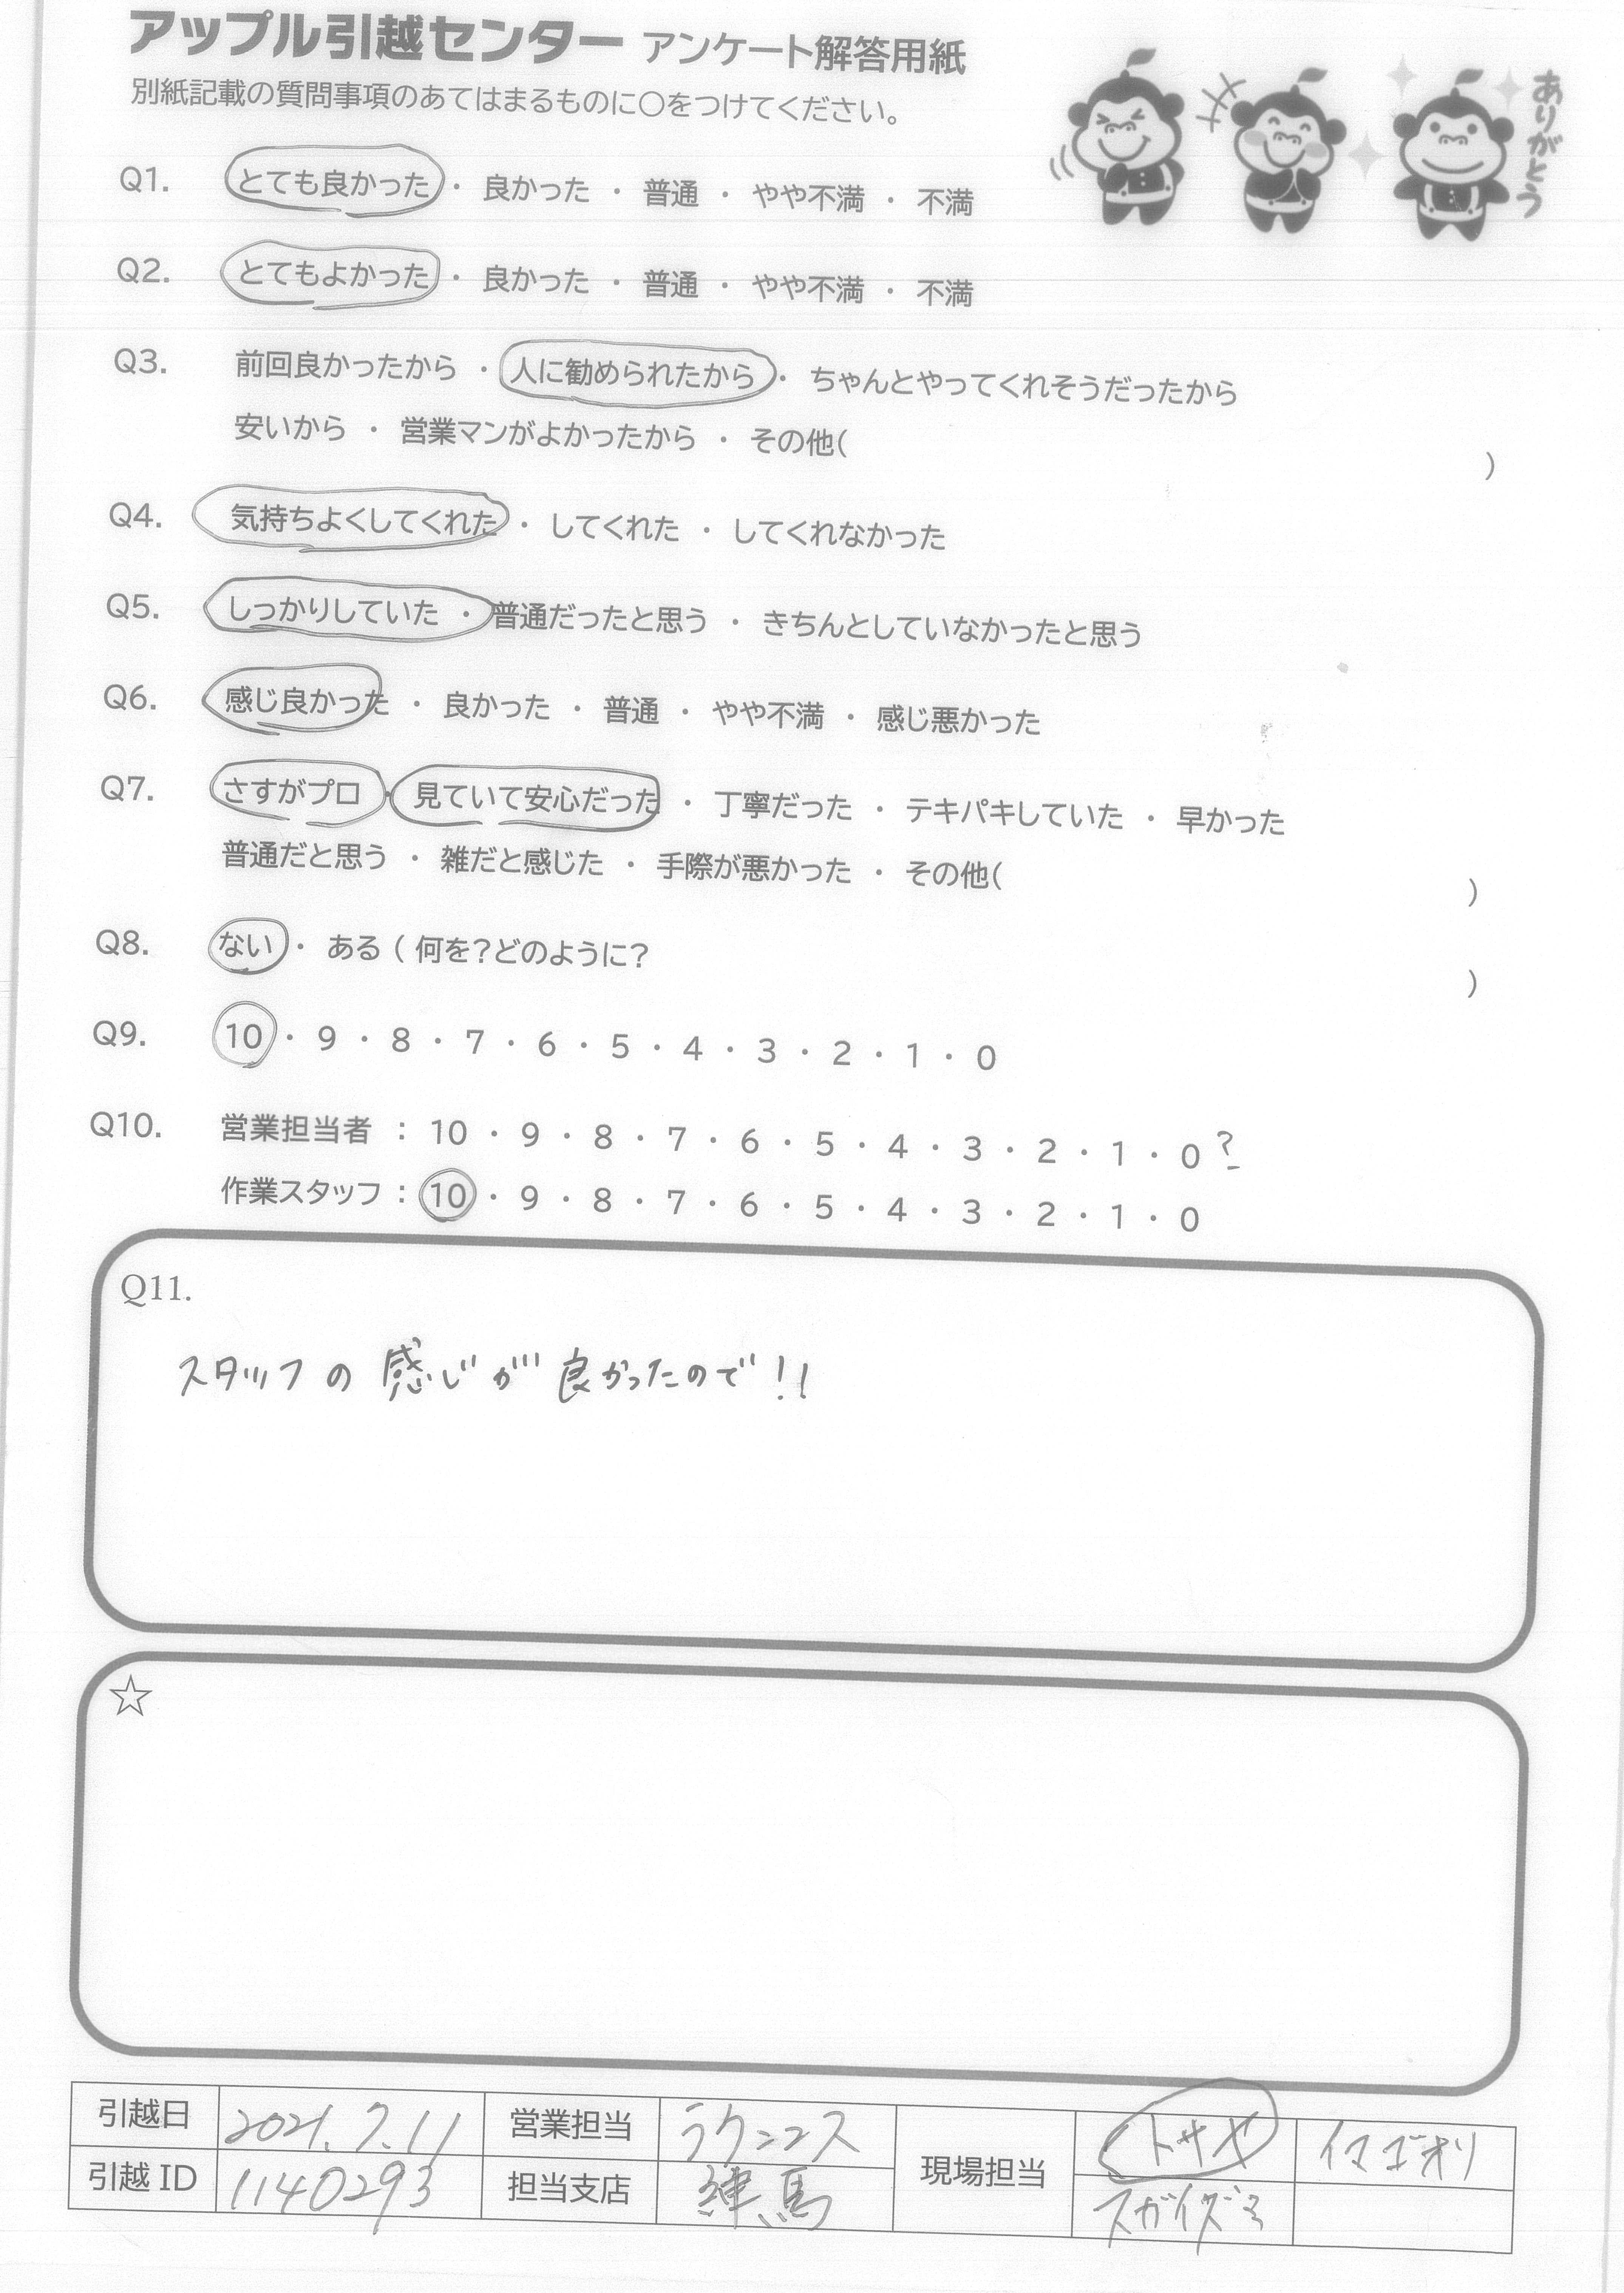 アップル引越センター アンケート解答用紙
別紙記載の質問事項のあてはまるものに〇をつけてください。
ありがとう
Q1. とても良かった ・ 良かった ・ 普通 ・ やや不満 ・ 不満
Q2. とてもよかった ・ 良かった ・ 普通 ・ やや不満 ・ 不満
Q3. 前回良かったから ・ 人に勧められたから ・ ちゃんとやってくれそうだったから
安いから ・ 営業マンがよかったから ・ その他( )
Q4. 気持ちよくしてくれた ・ してくれた ・ してくれなかった
Q5. しっかりしていた ・ 普通だったと思う ・ きちんとしていなかったと思う
Q6. 感じ良かった ・ 良かった ・ 普通 ・ やや不満 ・ 感じ悪かった
Q7. さすがプロ ・ 見ていて安心だった ・ 丁寧だった ・ テキパキしていた ・ 早かった
普通だと思う ・ 雑だと感じた ・ 手際が悪かった ・ その他( )
Q8. ない ・ ある ( 何を?どのように? )
Q9. 10 ・ 9 ・ 8 ・ 7 ・ 6 ・ 5 ・ 4 ・ 3 ・ 2 ・ 1 ・ 0
Q10. 営業担当者 : 10 ・ 9 ・ 8 ・ 7 ・ 6 ・ 5 ・ 4 ・ 3 ・ 2 ・ 1 ・ 0 ?
作業スタッフ : 10 ・ 9 ・ 8 ・ 7 ・ 6 ・ 5 ・ 4 ・ 3 ・ 2 ・ 1 ・ 0
Q11.
スタッフの感じが良かったので!!
☆
引越日 2021.7.11 営業担当 ラクニコス 現場担当 トサヤ イマゴオリ
引越 ID 1140293 担当支店 練馬 スガイズミ